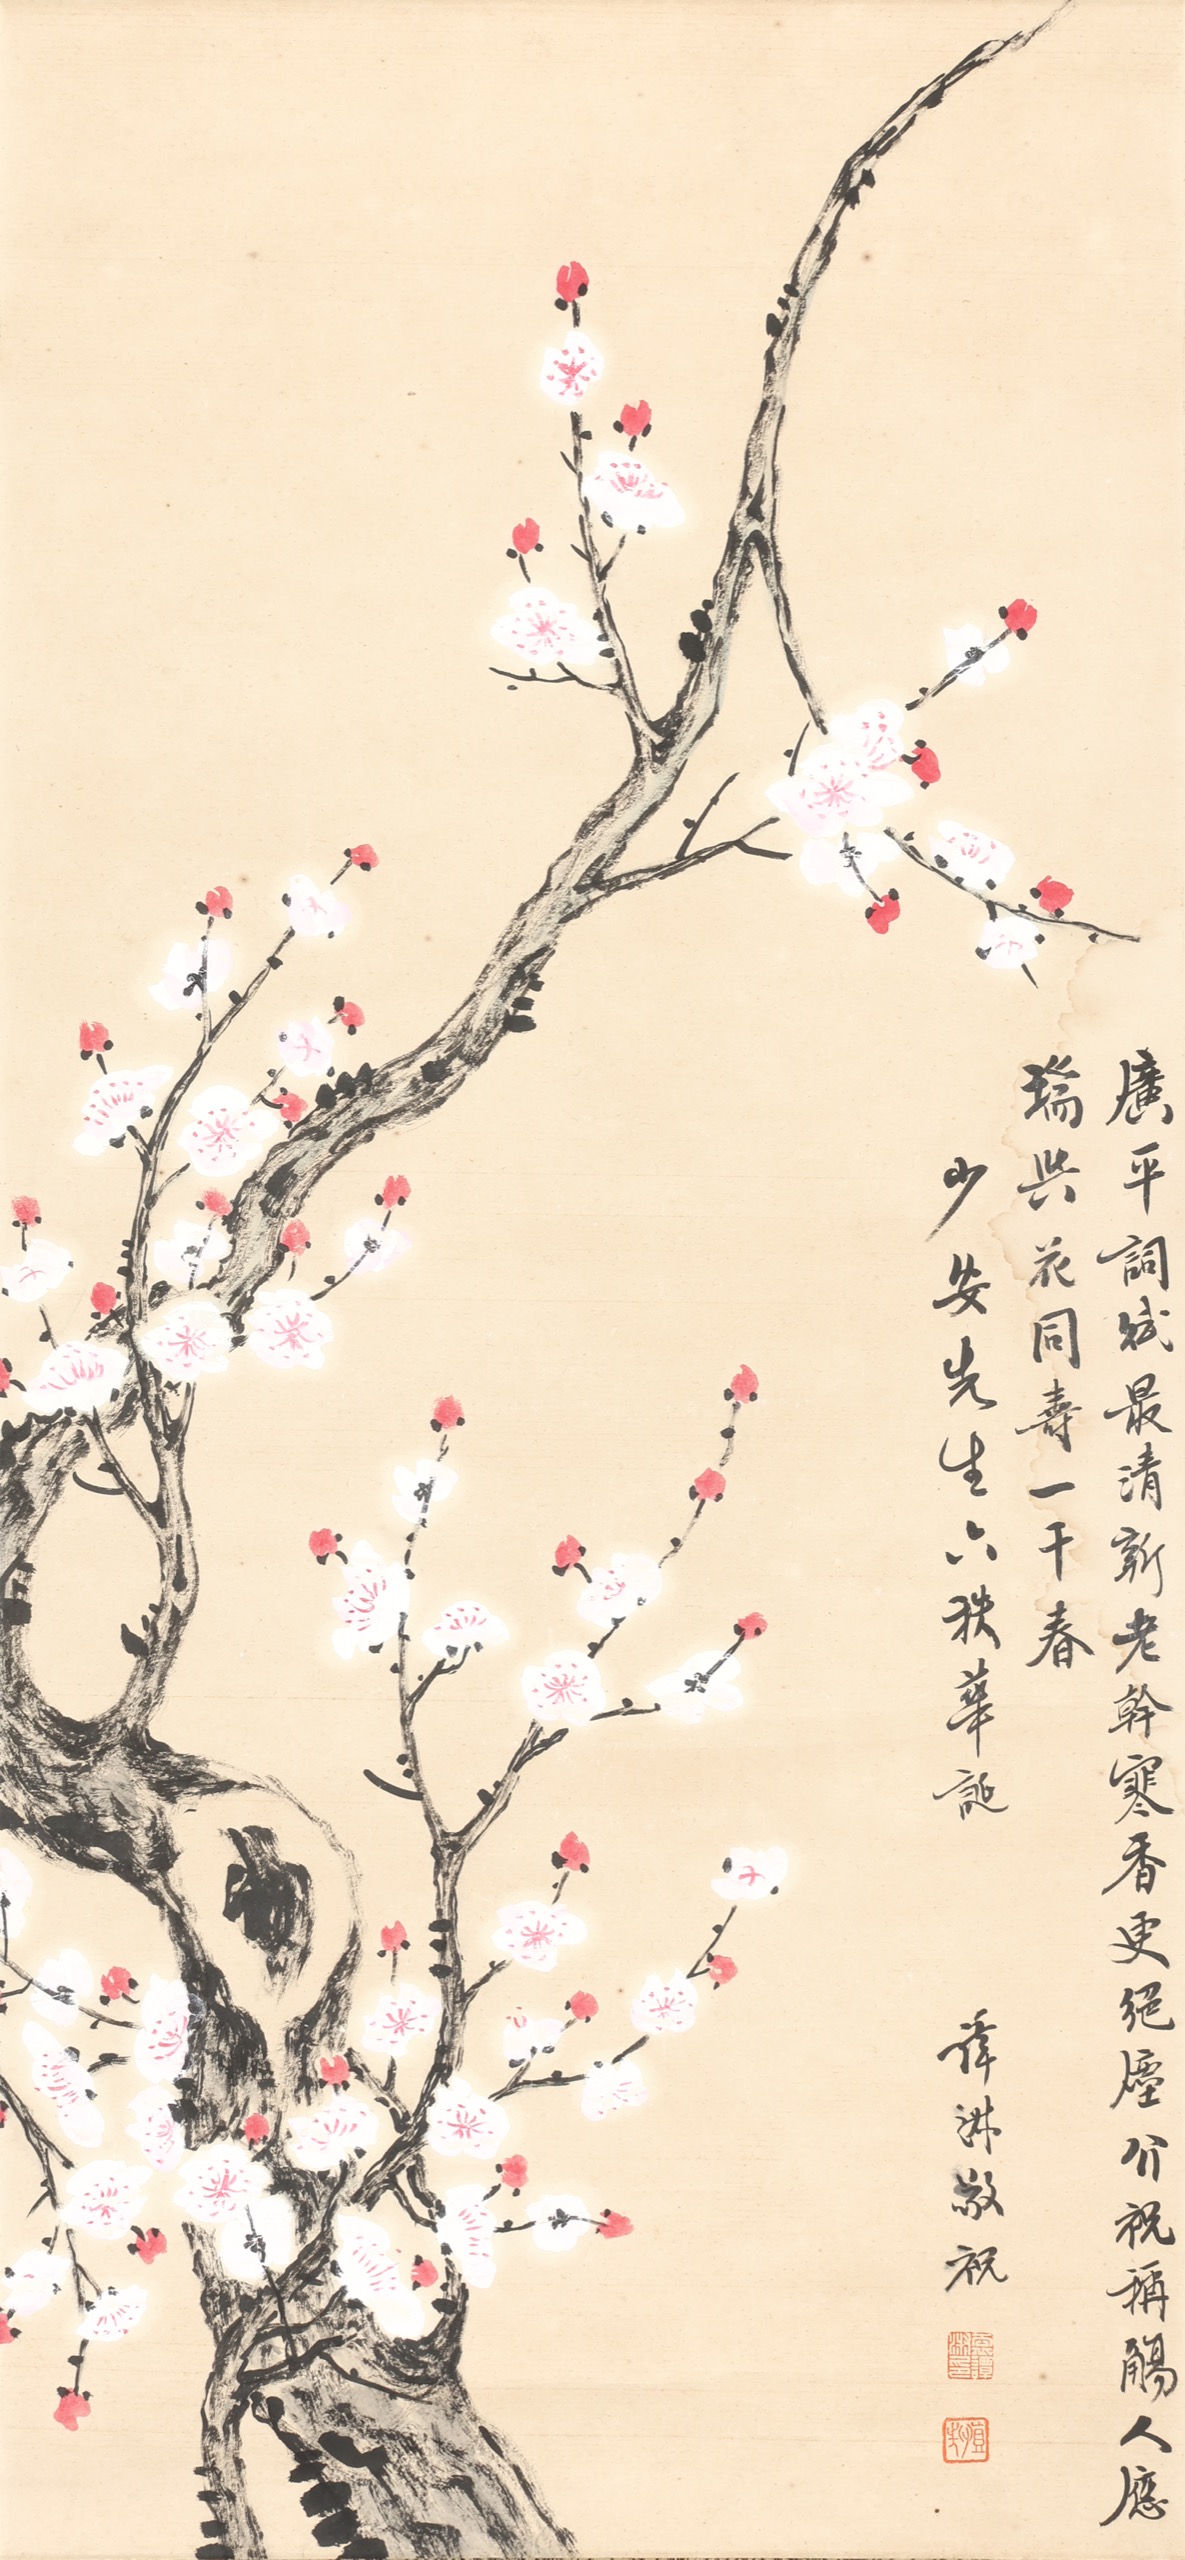 廣平詞賦最清新老幹寒香更絕塵介祝稱觴人應
瑞與花同壽一千春
少安先生六秩華誕
敬祝